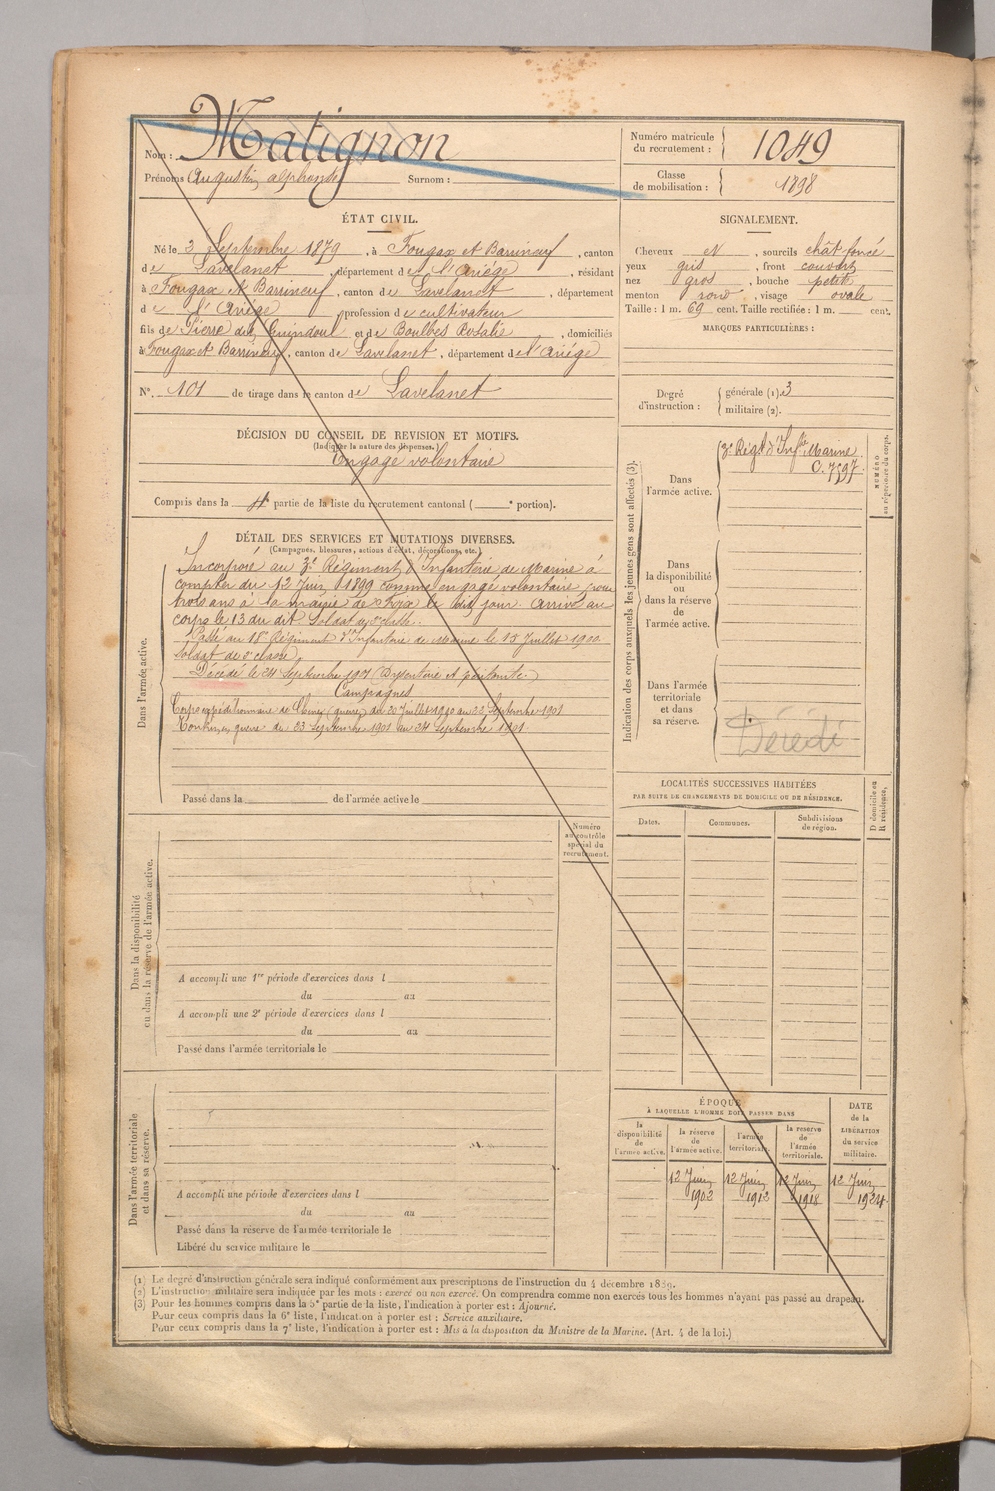 Nom : Matignon
Prénoms Augustin alphonse Surnom :
Numéro matricule du recrutement : 1049
Classe de mobilisation : 1898
ÉTAT CIVIL.
Né le 2 Septembre 1879, à Fougax et Barrineuf, canton
de Lavelanet, département de l'Ariége, résidant
à Fougax et Barrineuf, canton de Lavelanet, département
de l'Ariége, profession de cultivateur
fils de Pierre dit Guindoul et de Boulbes Rosalie, domiciliés
à Fougax et Barrineuf, canton de Lavelanet, département de l'Ariége
N°. 101 de tirage dans le canton de Lavelanet
SIGNALEMENT.
Cheveux et, sourcils chât foncé
yeux gris, front couvert
nez gros, bouche petite
menton rond, visage ovale
Taille : 1 m. 69 cent. Taille rectifiée : 1 m. cent.
MARQUES PARTICULIÈRES :
Degré d'instruction :
générale (1). 3
militaire (2).
DÉCISION DU CONSEIL DE REVISION ET MOTIFS.
(Indiquer la nature des dispenses.)
Engagé volontaire
Compris dans la 4e partie de la liste du recrutement cantonal ( e portion).
DÉTAIL DES SERVICES ET MUTATIONS DIVERSES.
(Campagnes, blessures, actions d'éclat, décorations, etc.)
Dans l'armée active.
Incorporé au 3e Régiment d'Infanterie de Marine à
compter du 12 Juin 1899 comme engagé volontaire, pour
trois ans à la mairie de Foix le dit jour. Arrivé au
corps le 13 du dit. Soldat de 2e classe.
Passé au 18e Régiment d'Infanterie de Marine le 15 Juillet 1900.
Soldat de 2e classe.
Décédé le 24 Septembre 1901 (Dysenterie et péritonite.)
Campagnes
Corps expéditionnaire de Chine (guerre) du 20 Juillet 1900 au 22 Septembre 1901
Tonkin en guerre du 23 Septembre 1901 au 24 Septembre 1901.
Passé dans la de l'armée active le
Indication des corps auxquels les jeunes gens sont affectés (3).
NUMÉRO au répertoire du corps.
Dans l'armée active.
3e Régt d'Infrie Marine
C. 7597
Dans la disponibilité ou dans la réserve de l'armée active.
Dans l'armée territoriale et dans sa réserve.
Décédé
LOCALITÉS SUCCESSIVES HABITÉES
PAR SUITE DE CHANGEMENTS DE DOMICILE OU DE RÉSIDENCE.
Dates. Communes. Subdivisions de région.
D domicile ou R résidence.
Dans la disponibilité ou dans la réserve de l'armée active.
Numéro au contrôle spécial du recrutement.
A accompli une 1re période d'exercices dans l
du au
A accompli une 2e période d'exercices dans l
du au
Passé dans l'armée territoriale le
Dans l'armée territoriale et dans sa réserve.
A accompli une période d'exercices dans l
du au
Passé dans la réserve de l'armée territoriale le
Libéré du service militaire le
ÉPOQUE
À LAQUELLE L'HOMME DOIT PASSER DANS
la disponibilité de l'armée active.
la réserve de l'armée active.
l'armée territoriale.
la réserve de l'armée territoriale.
DATE de la LIBÉRATION du service militaire.
12 Juin 1902
12 Juin 1912
12 Juin 1918
12 Juin 1924
(1) Le degré d'instruction générale sera indiqué conformément aux prescriptions de l'instruction du 4 décembre 1889.
(2) L'instruction militaire sera indiquée par les mots : exercé ou non exercé. On comprendra comme non exercés tous les hommes n'ayant pas passé au drapeau.
(3) Pour les hommes compris dans la 5e partie de la liste, l'indication à porter est : Ajourné.
Pour ceux compris dans la 6e liste, l'indication à porter est : Service auxiliaire.
Pour ceux compris dans la 7e liste, l'indication à porter est : Mis à la disposition du Ministre de la Marine. (Art. 4 de la loi.)